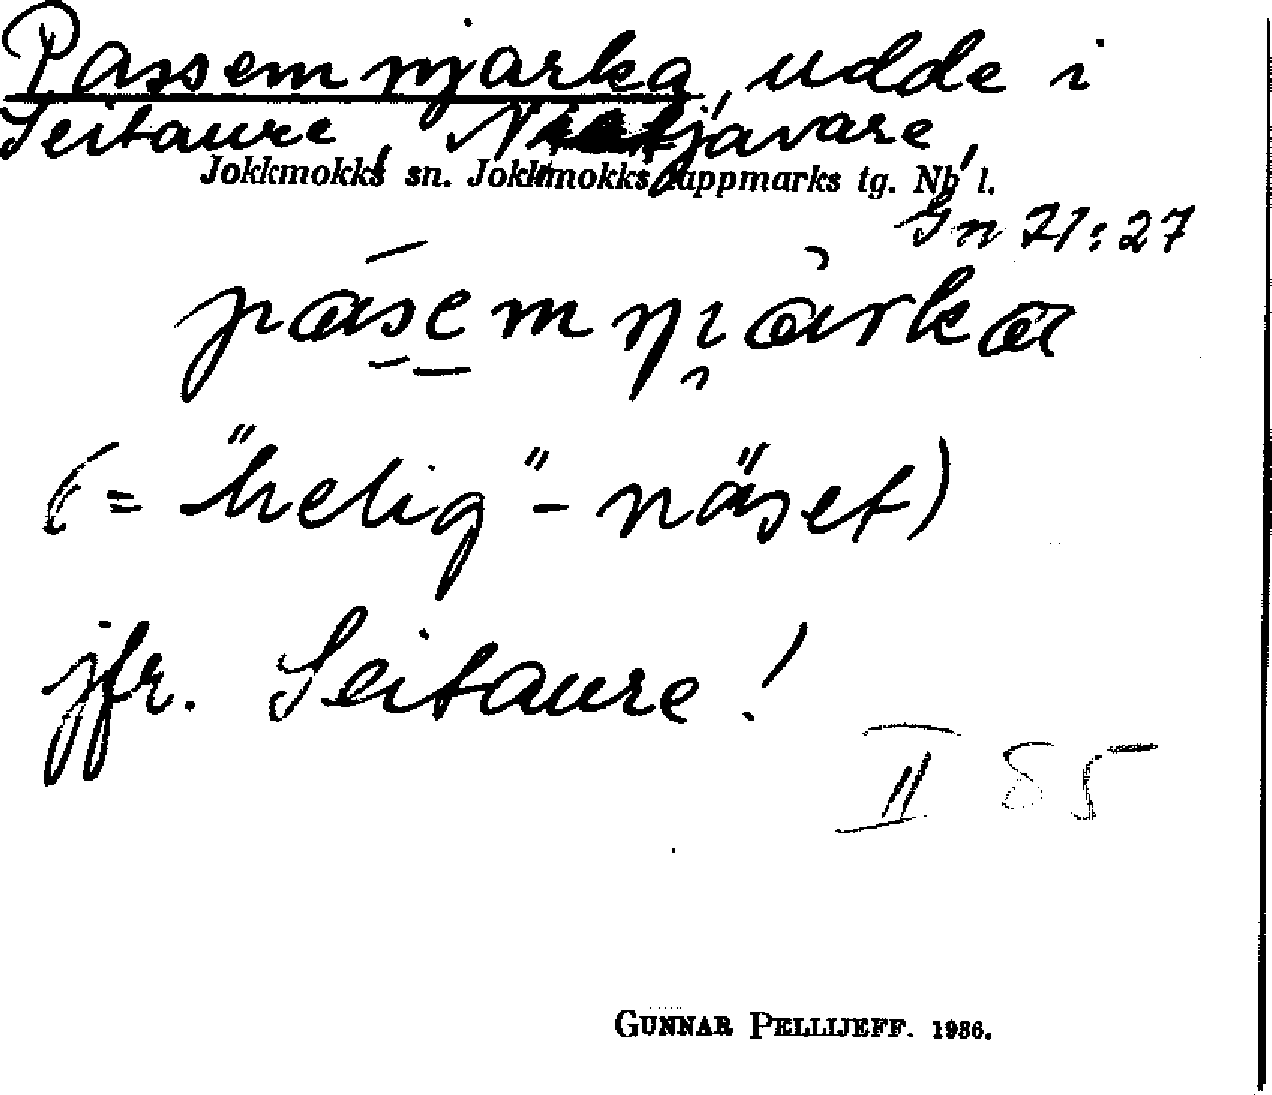 Passemnjarka, udde i
Seitaure, javare,
Jokkmokks sn. Jokkmokks lappmarks tg. Nb l.
Gn 71:27
påsem njårka
(= "helig"-näset)
jfr. Seitaure!
II 85
GUNNAR PELLIJEFF. 1936.